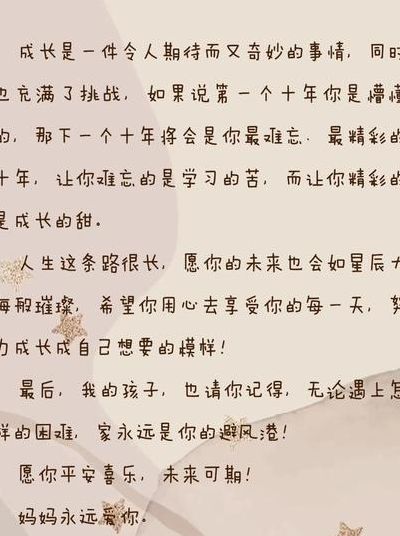 成长是一件令人期待而又奇妙的事情，同时
也充满了挑战，如果说第一个十年你是懵懂
的，那下一个十年将会是你最难忘、最精彩的
十年，让你难忘的是学习的苦，而让你精彩的
是成长的甜。
人生这条路很长，愿你的未来也会如星辰大
海般璀璨，希望你用心去享受你的每一天，努
力成长成自己想要的模样！
最后，我的孩子，也请你记得，无论遇上怎
样的困难，家永远是你的避风港！
愿你平安喜乐，未来可期！
妈妈永远爱你。